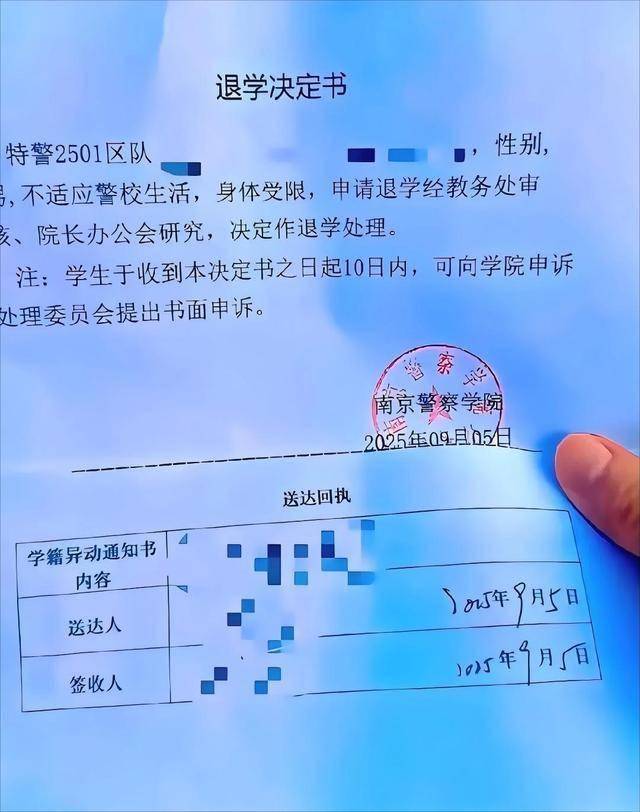 退学决定书
特警2501区队 ，性别,
,不适应警校生活，身体受限，申请退学经教务处审
核、院长办公会研究，决定作退学处理。
注：学生于收到本决定书之日起10日内，可向学院申诉
处理委员会提出书面申诉。
南京警察学院
2025年09月05日
送达回执
学籍异动通知书
内容
送达人 2025年9月5日
签收人 2025年9月5日